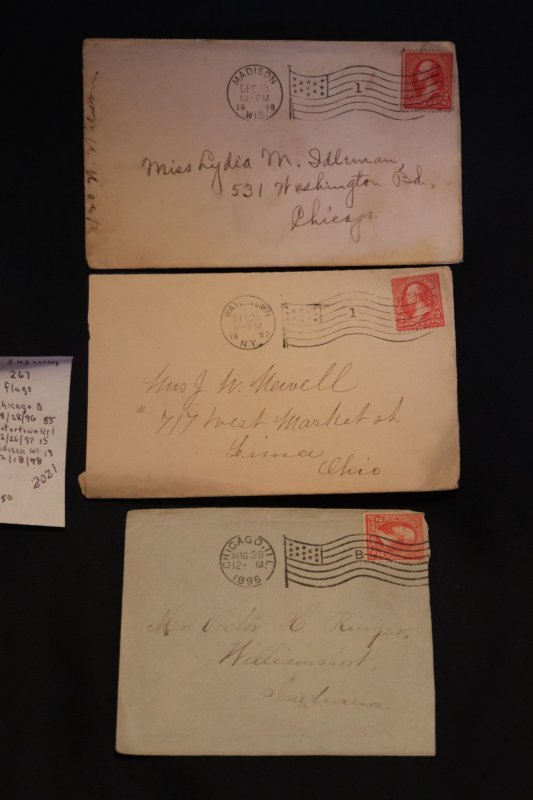 MADISON
DEC
10-PM
18 98
WIS.
1
Miss Lydia M. Idleman,
531 Washington Bd.
Chicago
WATERTOWN
DEC 26
-PM
18 97
N.Y.
1
2 2
Mrs J. W. Newell
# 717 West Market st
Lima
Ohio
3 US covers
267
flags
Chicago B
8/28/96 85
Watertown NY 1
2/26/97 15
Madison WI 13
2/18/98
2021
50
CHICAGO, ILL.
AUG 28
12- M
1896
B
Mr Victor H Ringer,
Williamsport,
Indiana